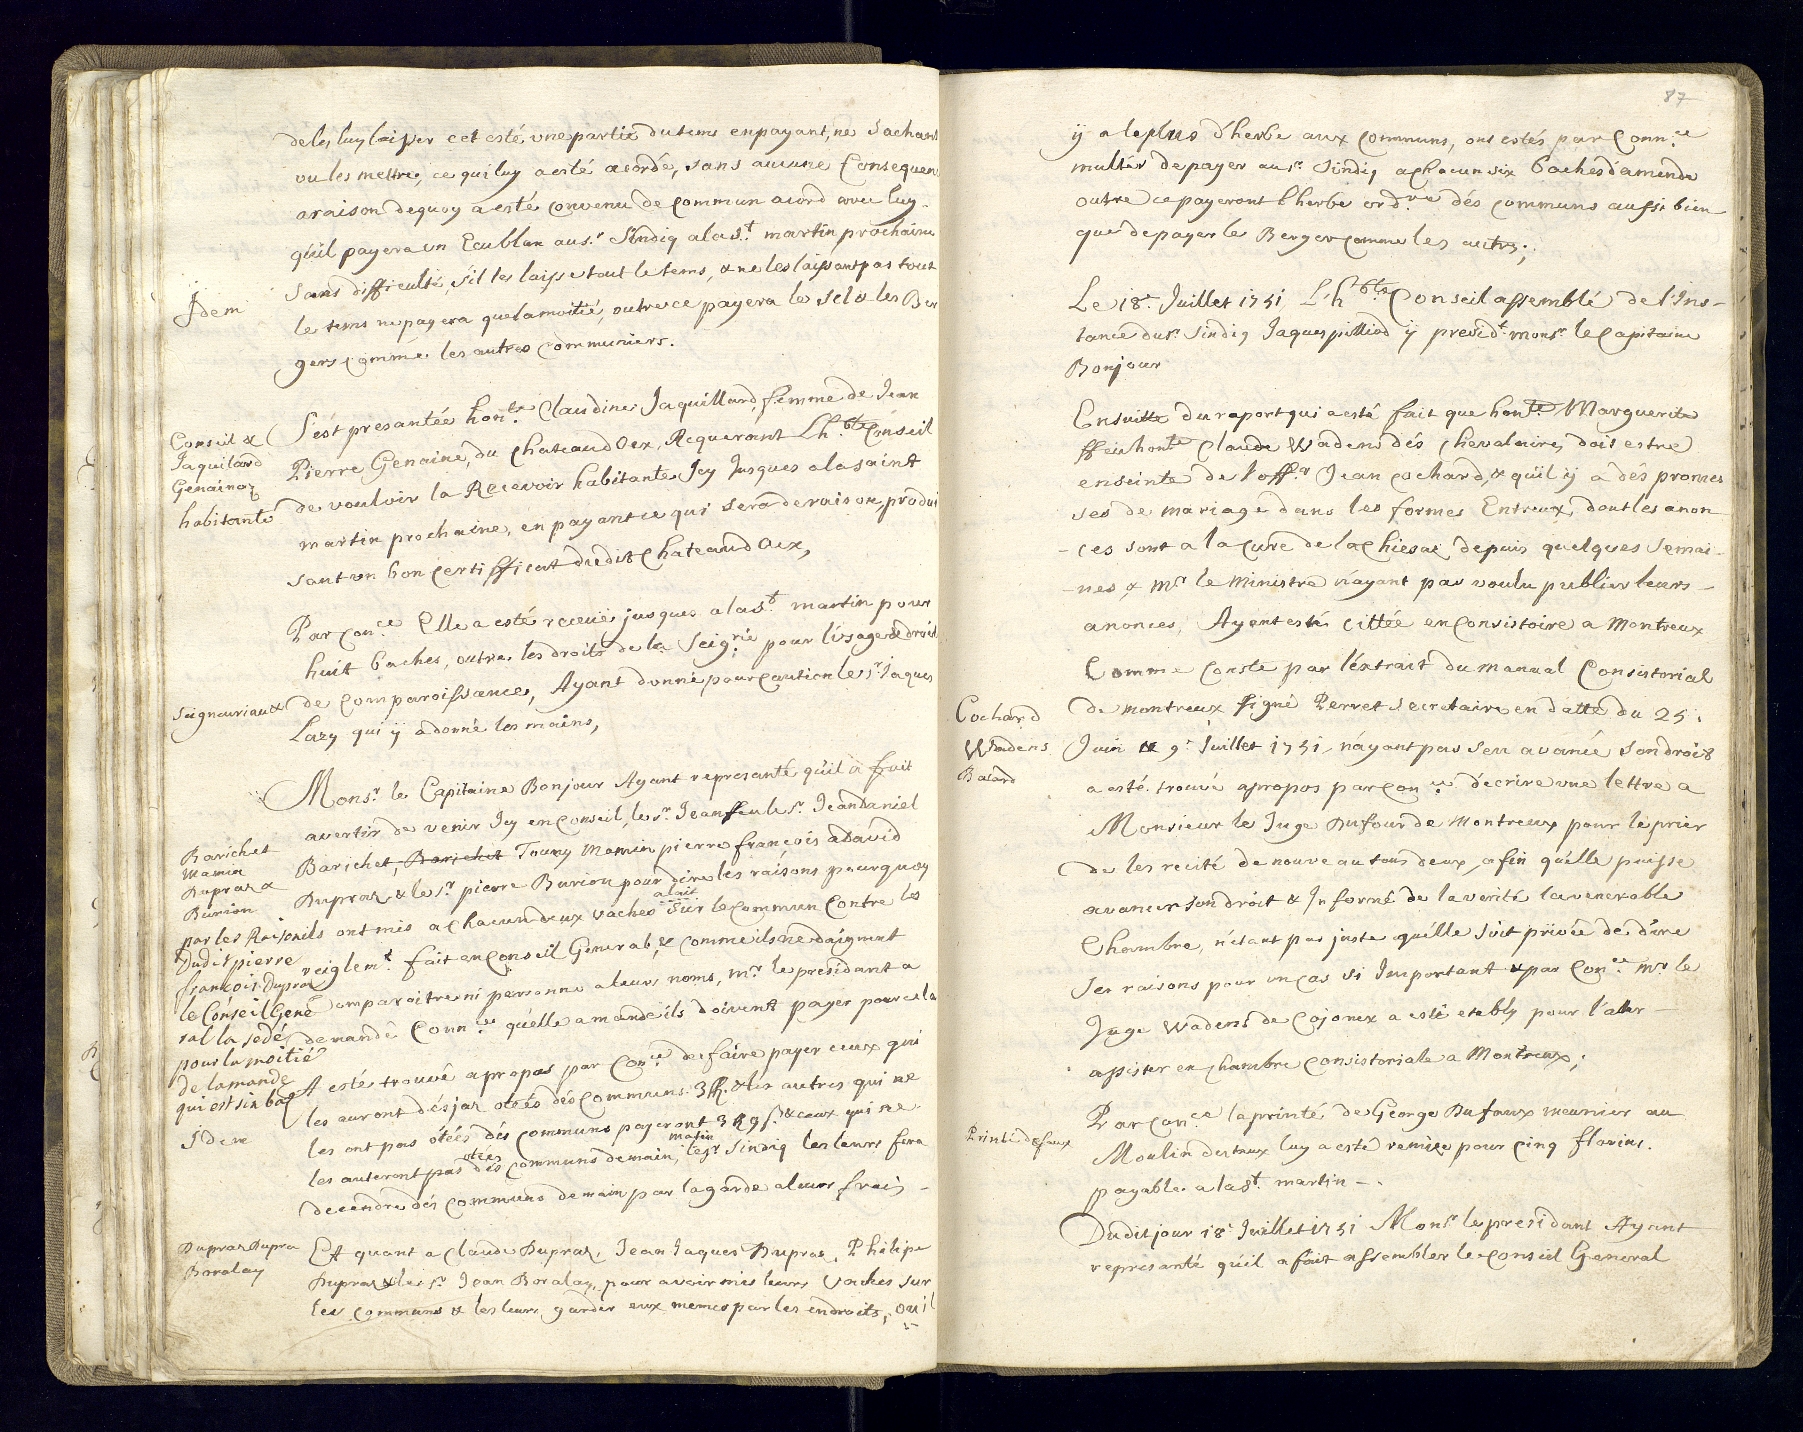 de les luy laisser cet esté une partie du tems en payant, ne sachant
ou les mettre, ce qui luy a esté acordé, sans aucune Consequen
a raison dequoy a esté convenu de commun acord avec luy
qu'il payera un Ecublan au sr. Sindiq a la St. martin prochaine
sans difficulté, s'il les laisse tout le tems, & ne les laissant pas tout
Idem
le tems ne payera que la moitié, outre ce payera le sel & les Ber
gers comme les autres communiers.
Conseil &
Jaquilard
Genainaz
habitante
S'est presantée honte. Claudine Jaquillard, femme de Jean
Pierre Genaine, du chateaud Oex, Requerant L'h.ble Conseil
de vouloir la Recevoir habitante Icy Jusques a la saint
martin prochaine, en payant ce qui sera de raison, produi
sant un bon certifficat dudit chateaud Oex,
Par con.ce Elle a esté receüe jusques a la St. martin pour
huit baches, outre les droits de la Seig.rie pour l'usage & droit
Seigneuriaux
de comparoissances, Ayant donné pour caution le sr. Jaques
Lazy qui ÿ a donné les mains,
Monsr. le Capitaine Bonjour Ayant representé qu'il a fait
avertir de venir Icy en conseil, le sr. Jean ffeu le sr. Jean Daniel
Barichet
Mamin
Dupraz &
Burion
Barichet, Barichet Touny Mamin pierre françois a David
Dupraz, & le sr. pierre Burion pour dire les raisons pourquoy
par les Raisons
dudit pierre
françois Dupraz
le Conseil Gene
ral la sedé
pour la moitié
de lamande
qui est six bach
ils ont mis a chacun deux vaches a lait sur le commun contre le
reiglemt. fait en conseil General, & comme ils ne daignent
comparoitre ni personne a leurs noms, mr. le presidant a
demandé conn.ce quelle amande ils doivent payer pour cela
A esté trouvé a propos par Con.ce de faire payer ceux qui
les auront desjaz otées dés communs 3 ff. & les autres qui ne
Idem
les ont pas ótées dés communs payeront & ceux qui ne
les auteront pas otées dés communs demain matin, le sr. Sindiq les leurs fera
decendre dés communs demain par la garde a leur frais
Dupraz Dupra
Boralay
Et quant a claude Dupraz, Jean Jaques Dupraz, Philipe
Dupraz & le sr. Jean Boralay, pour avoir mis leurs vaches sur
les communs & les leurs garder eux memes par les endroits, ou il
87
ÿ a le plus d'herbe aux communs, ont estés par conn.ce
multér de payer au sr. Sindiq a chacun six baches d'amende
outre ce payeront l'herbe ord.re dés communs aussi bien
que de payer le Berger comme les autres;
Le 18e. Juillet 1751 L'h.ble Conseil assemblé de l'Ins-
tance du sr. Sindiq Jaques pilliod ÿ presidt. monsr. le Capitaine
Bonjour
Ensuitte du raport qui a esté fait que honte. Marguerite
ffeu honte Claude Wadens dés chevalaire, doit estre
enseinte de l'off.r Jean Cochard, & qu'il ÿ a dés promes
ses de mariage dans les formes Entreux, dont les anon
-ces sont a la cure de la Chiesaz depuis quelques semai-
-nes & mr. le ministre n'ayant pas voulu publier leurs-
anonces, Ayant esté cittée en Consistoire a Montreux
Comme conste par l'extrait du manual Consistorial
Cochard
Wadens
Batard
de montreux signé Perret secretaire en datte du 25.
Juin & 9e. Juillet 1751, n'ayant pas seu avancé son droict
a esté trouvé apropos par con.ce d'écrire une lettre a
Monsieur le Juge Dufour de Montreux pour le prier
de les recité de nouveau tous deux, afin qu'elle puisse
avancer son droit & Informé de la verité la venerable
Chambre, n'etant pas juste quélle soit privée de dire
ses raisons pour un cas si Important & par con.ce mr. le
Juge Wadens de Cojonex a esté etably pour l'aler-
apister en chambre consistoriale a Montreux;
Printé dufaux
Par con.ce la printé de George Dufaux meunier au
Moulin luy a esté remise pour cinq florins.
payable a la St. martin -.
Dudit jour 18e. Juillet 1751 Monsr. le presidant Ayant
representé qu'il a fait assembler le conseil General